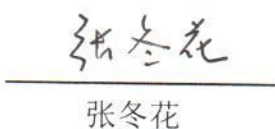 张冬花
张冬花